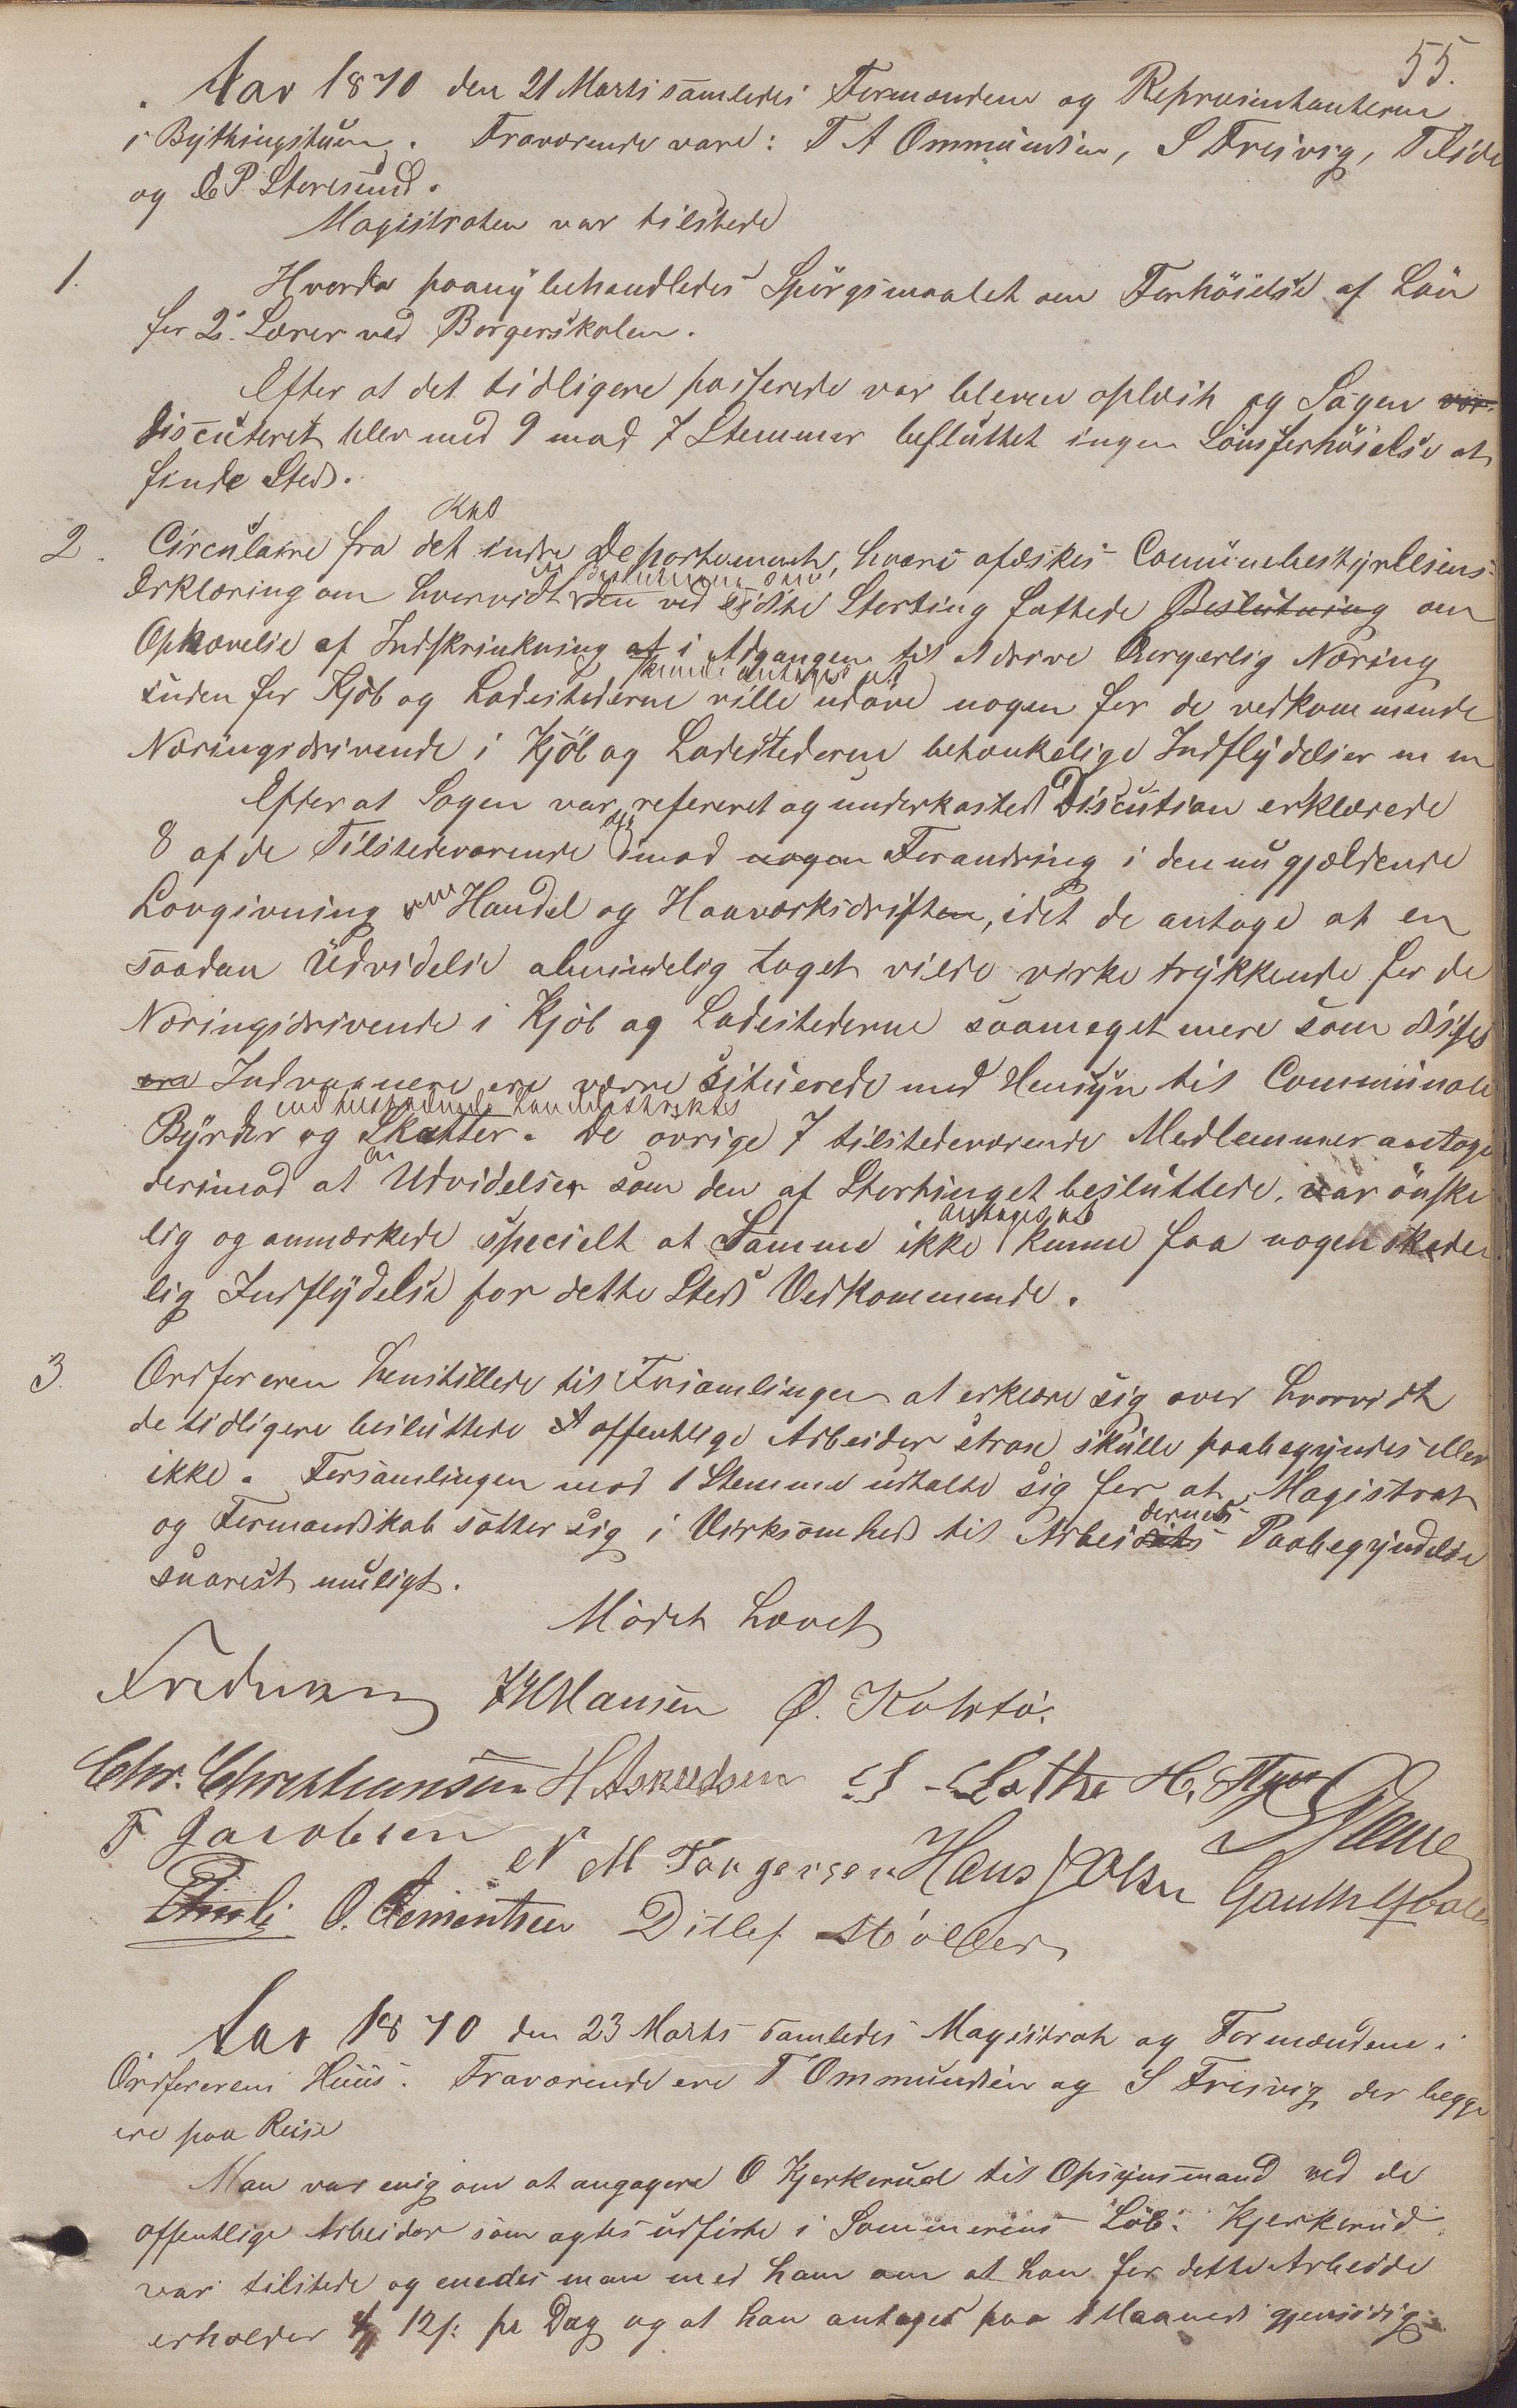 55.
Aar 1870 den 21 Marts samledes Formændene og Repræsentanterne
i Bythingstuen. Fraværende vare: T A Ommundsen, S Freivig, T Eide
og E P Storesund.
Magistraten var tilstede
1. Hvorda paany behandledes Spörgsmaalet om Forhöielse af Lön
for 2den Lærer ved Borgerskolen.
Efter at det tidligere passerede var bleven oplæst og Sagen var
discuteret blev med 9 mod 7 Stemmer besluttet ingen Lönsforhöielse at
finde Sted.
Kgl
2. Circulaire fra det indre Departement, hvori afæskes Communebestyrelsens
en Beslutning som
Erklæring om hvorvidt den ved sidste Storting fattede Beslutning om
Ophævelse af Indskrænkning af i Adgangen til at drive Borgerlig Næring
kunde antages at
uden for Kjöb og Ladestederne ville udöve nogen for de vedkommende
Næringsdrivende i Kjöb og Ladestederne betænkelige Indflydelser m m
Efter at Sagen var refereret og underkastet Discution erklærede
sig
8 af de Tilstedeværende imod nogen Forandring i den nu gjældende
Lovgivning om Handel og Haaværksdriften, idet de antage at en
saadan Udvidelse almindelig taget vilde virke trykkende for de
Næringsdrivende i Kjöb og Ladestederne saameget mere som disses
ere Indvaanere ere værre situerede med Hensyn til Communale
end tilstödende Landdistrikts
Byrder og Skatter. De övrige 7 tilstedeværende Medlemmer antoge
en
derimod at Udvidelser som den af Stortinget besluttede, var önske
lig og anmærkede specielt at Samme ikke kunne faa nogen skade
antages at
lig Indflydelse for dette Steds Vedkommende.
3. Ordföreren henstillede til Forsamlingen at erklære sig over hvorvidt
de tidligere besluttede A offentlige Arbeider strax skulle paabegyndes eller
ikke. Forsamlingen mod 1 Stemme udtalte sig for at Magistrat
og Formandskab sætter sig i Virksomhed til Arbeidets Paabegyndelse
dernes
snarest muligt.
Mödet hævet
Fredriksen JHHansen Ø. Kolstö.
Chr. Christiansen H Asmundsen L Lothe H. Steen
T Jacobsen N M Torgersen Hans J Olsen
O. Clementsen Ditlef Möller
Aar 1870 den 23 Marts samledes Magistrat og Formændene i
Ordförerens Huus. Fraværende ere T Ommundsen og S Freivig der begge
ere paa Reise
Man var enig om at engagere O Kjerkerud til Opsynsmand ved de
offentlige Arbeider som agtes udförte i Sommerens Löb. Kjerkerud
var tilstede og enedes man med ham om at han for dette Arbeide
erholder 12 p. pr Dag og at han antages paa 1 Maaned gjensidig